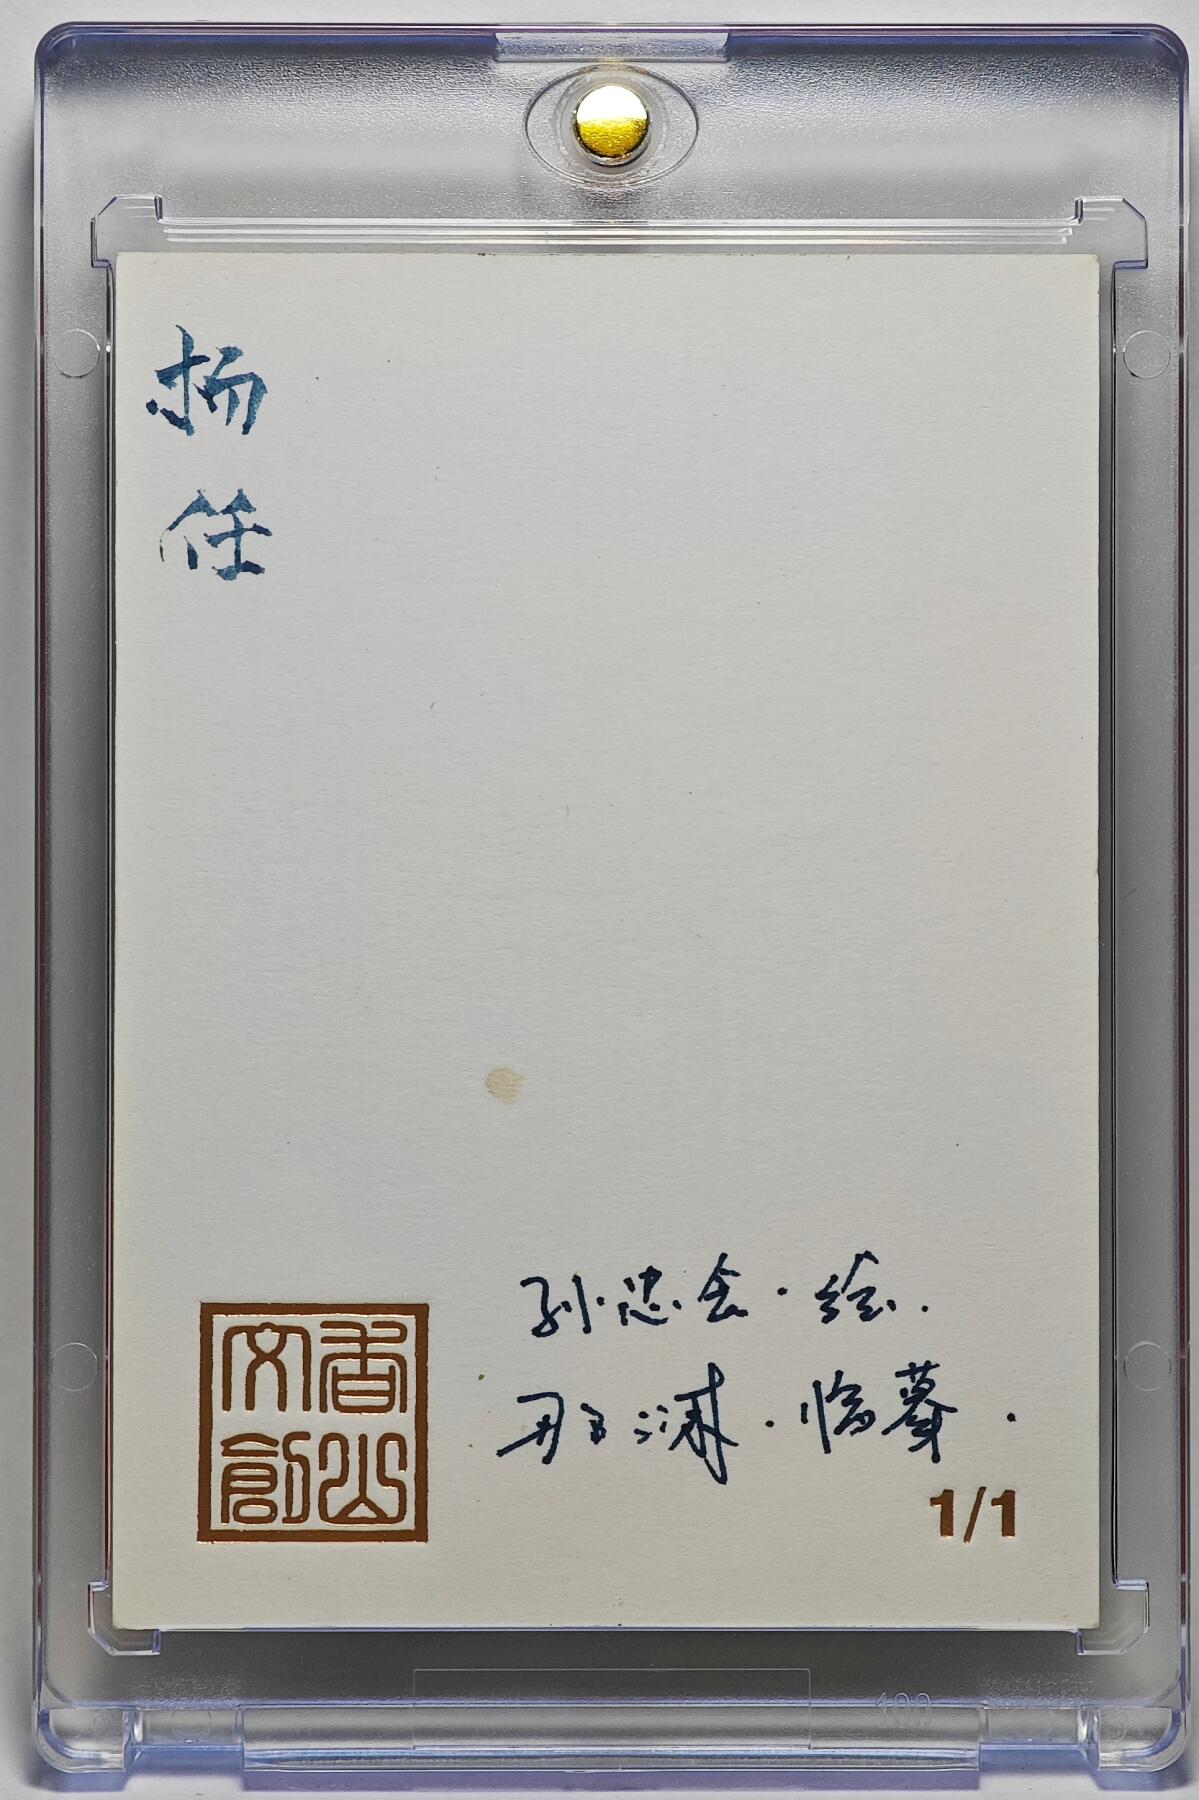 扬
任
孙忠会·绘.
·临摹.
香山文创
1/1
100